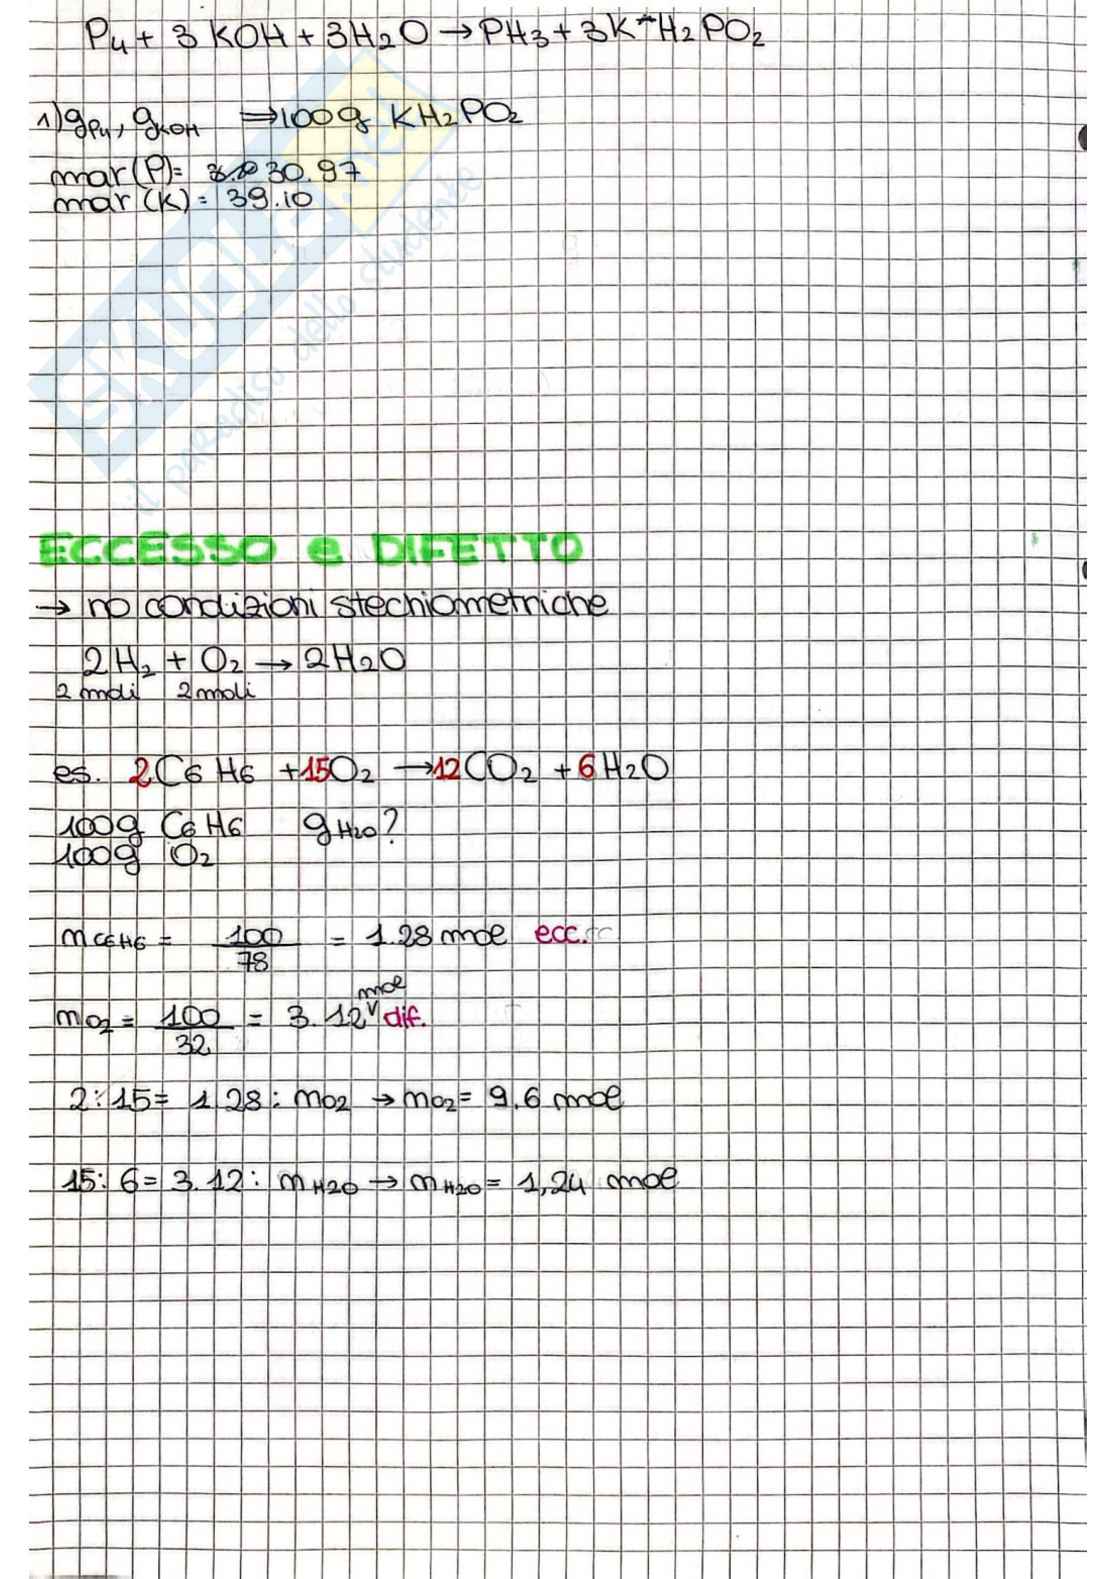 P4 + 3 KOH + 3H2O → PH3 + 3K H2PO2
1) gP4, gKOH ⇒ 100g KH2PO2
mar(P) = 30.97
mar(K) = 39.10
SKUOLA.net
il paradiso dello studente
ECCESSO e DIFETTO
→ no condizioni stechiometriche
2H2 + O2 → 2H2O
2 moli 2 moli
es. 2C6H6 + 15O2 → 12CO2 + 6H2O
100g C6H6 gH2O?
100g O2
mC6H6 = 100/78 = 1.28 moe ecc.
mO2 = 100/32 = 3.12 moe dif.
2:15 = 1.28 : mO2 → mO2 = 9.6 moe
15:6 = 3.12 : mH2O → mH2O = 1,24 moe